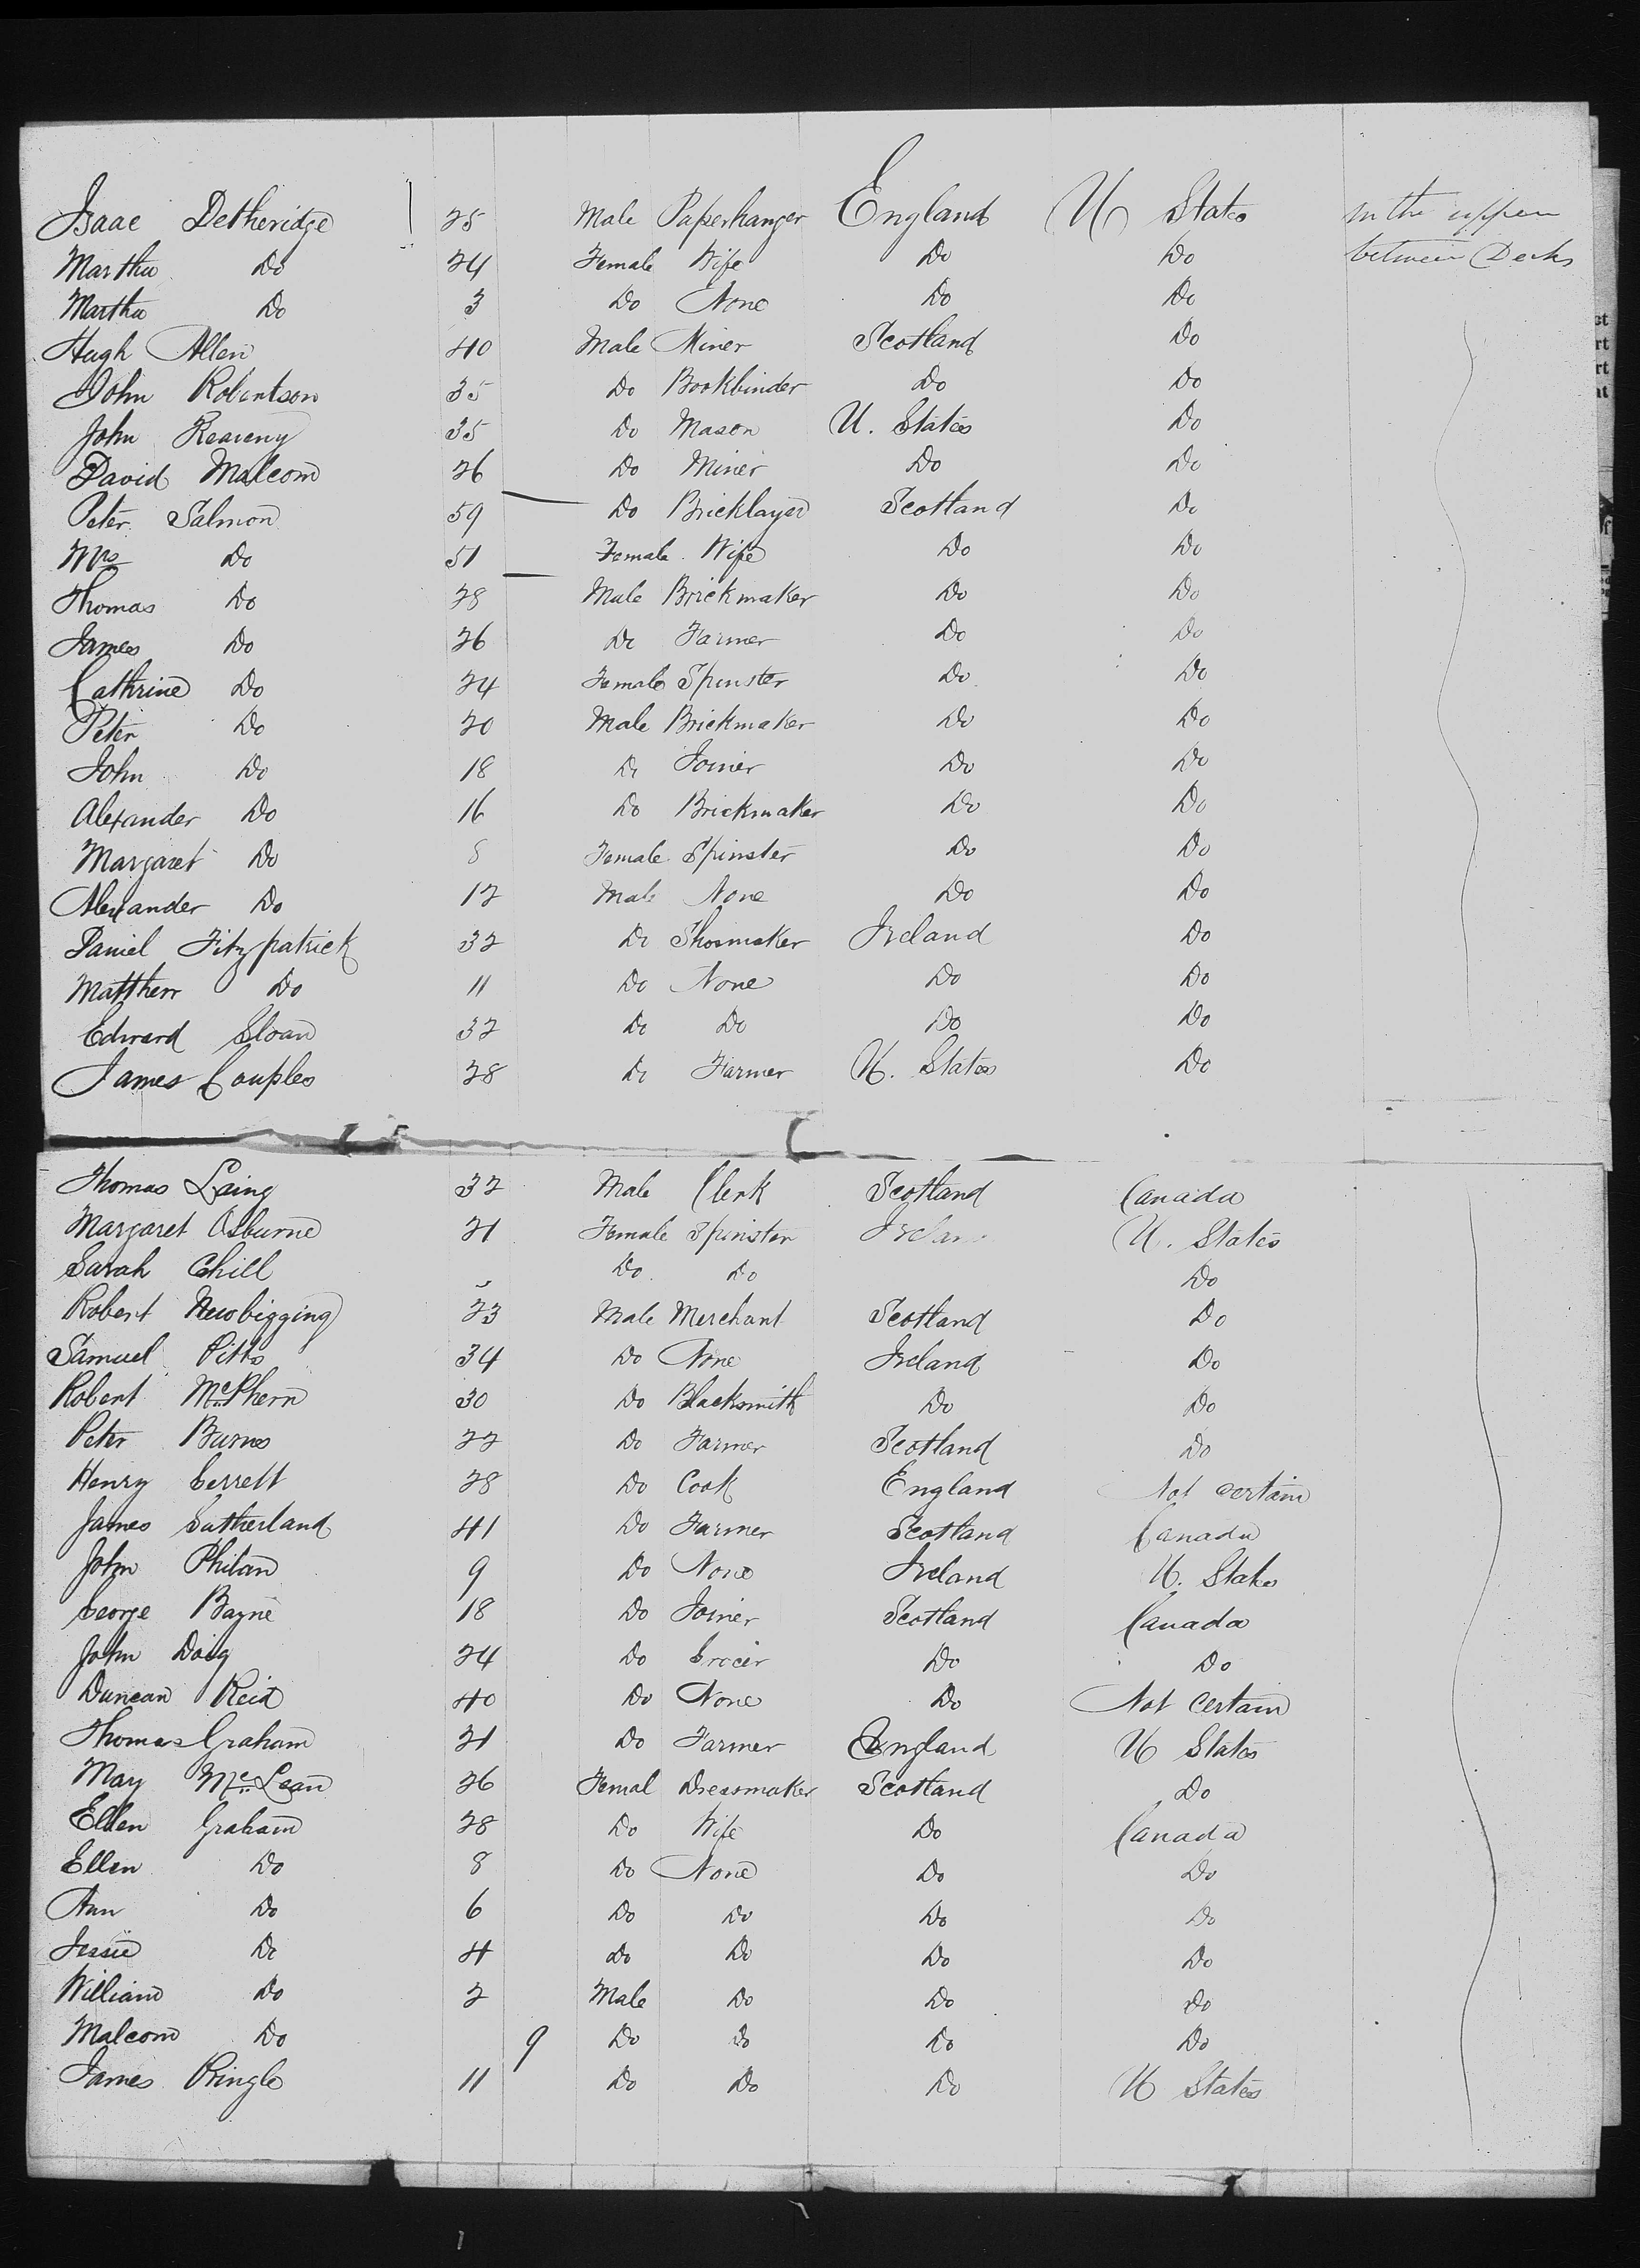 Isaac Detheridge 25 Male Paperhanger England U States In the upper
Martha Do 24 Female Wife Do Do between Decks
Martha Do 3 Do None Do Do
Hugh Allen 40 Male Miner Scotland Do
John Robertson 35 Do Bookbinder Do Do
John Reaveny 35 Do Mason U. States Do
David Malcom 26 Do Miner Do Do
Peter Salmon 59 Do Bricklayer Scotland Do
Mrs Do 51 Female Wife Do Do
Thomas Do 28 Male Brickmaker Do Do
James Do 26 Do Farmer Do Do
Cathrine Do 24 Female Spinster Do Do
Peter Do 20 Male Brickmaker Do Do
John Do 18 Do Joiner Do Do
Alexander Do 16 Do Brickmaker Do Do
Margaret Do 8 Female Spinster Do Do
Alexander Do 12 Male None Do Do
Daniel Fitzpatrick 32 Do Shoemaker Ireland Do
Matthew Do 11 Do None Do Do
Edward Sloan 32 Do Do Do Do
James Couples 28 Do Farmer U. States Do
Thomas Laing 32 Male Clerk Scotland Canada
Margaret Osburne 21 Female Spinster Ireland U. States
Sarah Chill Do Do Do
Robert Newbigging 23 Male Merchant Scotland Do
Samuel Pitts 34 Do None Ireland Do
Robert McPhern 30 Do Blacksmith Do Do
Peter Burns 22 Do Farmer Scotland Do
Henry Gerrett 28 Do Cook England Not certain
James Sutherland 41 Do Farmer Scotland Canada
John Philan 9 Do None Ireland U. States
George Bayne 18 Do Joiner Scotland Canada
John Doig 24 Do Grocer Do Do
Duncan Reid 40 Do None Do Not Certain
Thomas Graham 21 Do Farmer England U States
May McLean 26 Femal Dressmaker Scotland Do
Ellen Graham 28 Do Wife Do Canada
Ellen Do 8 Do None Do Do
Ann Do 6 Do Do Do Do
Jessie Do 4 Do Do Do Do
William Do 2 Male Do Do Do
Malcom Do 9 Do Do Do Do
James Pringle 11 Do Do Do U States